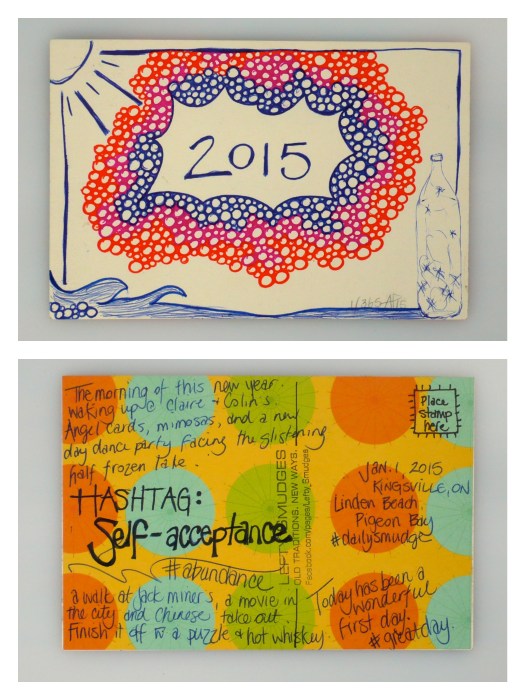 2015
1/365
The morning of this new year.
waking up @ Claire + Colin's.
Angel cards, mimosas, and a new
day dance party facing the glistening
half frozen lake.
HASHTAG:
Self-acceptance
#abundance
a walk at Jack miners, a movie in
the city and Chinese take out.
Finish it off w a puzzle + hot whiskey.
LEFTY SMUDGES
OLD TRADITIONS. NEW WAYS.
Facebook.com/pages/Lefty_Smudges/
Place
Stamp
here
Jan. 1, 2015
KINGSVILLE, ON
Linden Beach,
Pigeon Bay
#dailysmudge
Today has been a
wonderful
first day!
#greatday.